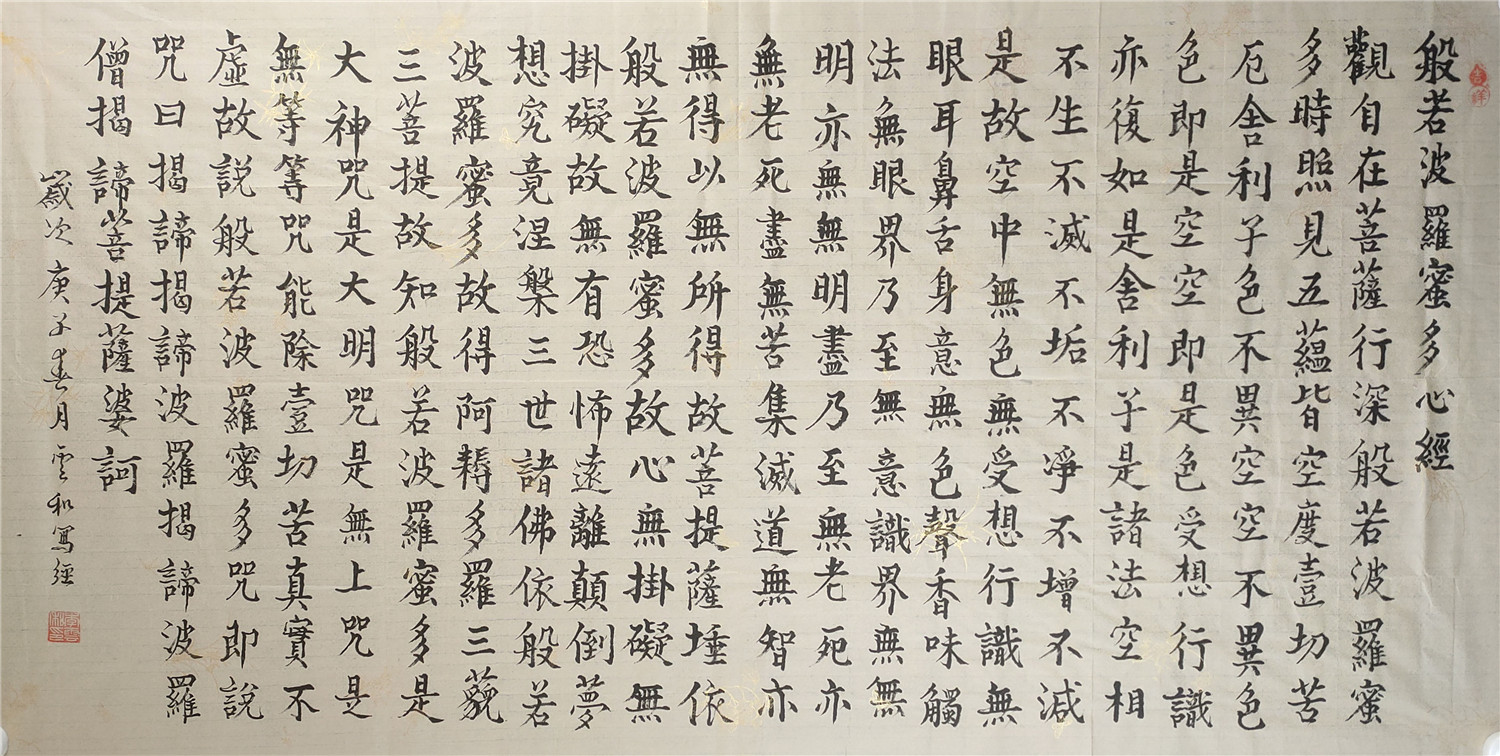 吉祥
般若波羅蜜多心經
觀自在菩薩行深般若波羅蜜
多時照見五蘊皆空度壹切苦
厄舍利子色不異空空不異色
色即是空空即是色受想行識
亦復如是舍利子是諸法空相
不生不滅不垢不凈不增不減
是故空中無色無受想行識無
眼耳鼻舌身意無色聲香味觸
法無眼界乃至無意識界無無
明亦無無明盡乃至無老死亦
無老死盡無苦集滅道無智亦
無得以無所得故菩提薩埵依
般若波羅蜜多故心無掛礙無
掛礙故無有恐怖遠離顛倒夢
想究竟涅槃三世諸佛依般若
波羅蜜多故得阿耨多羅三藐
三菩提故知般若波羅蜜多是
大神咒是大明咒是無上咒是
無等等咒能除壹切苦真實不
虛故說般若波羅蜜多咒即說
咒曰揭諦揭諦波羅揭諦波羅
僧揭諦菩提薩婆訶
歲次庚子春月雲和寫經